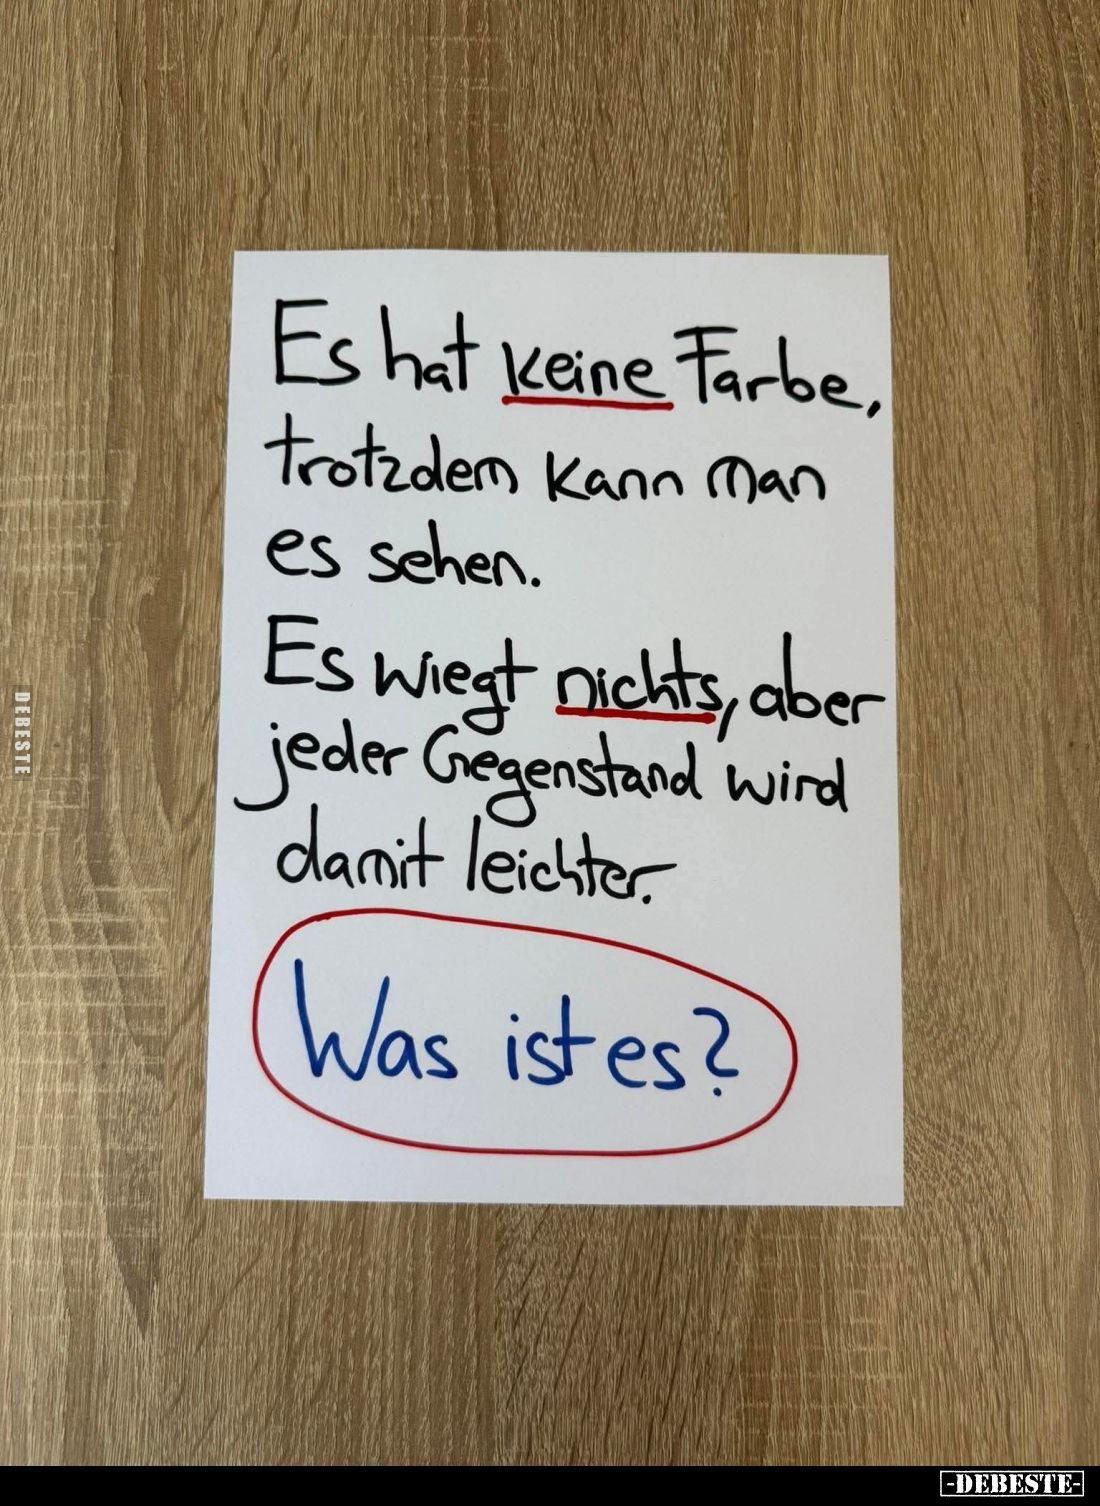 Es hat keine Farbe,
trotzdem kann man
es sehen.
Es wiegt nichts, aber
jeder Gegenstand wird
damit leichter.
Was ist es?
DEBESTE
-DEBESTE-